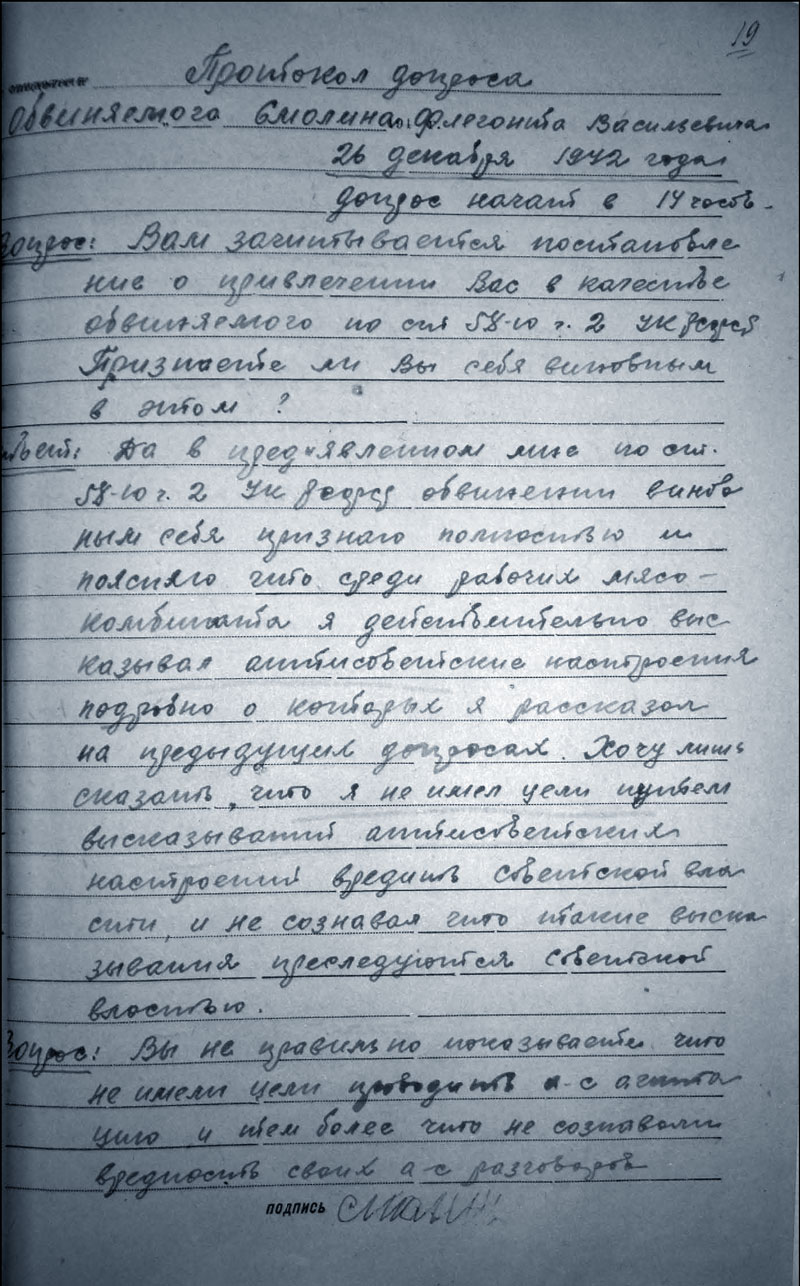 19
Протокол допроса
обвиняемого Смолина Флегонта Васильевича
26 декабря 1942 года
допрос начат в 14 часов.
Вопрос: Вам зачитывается постановле
ние о привлечении Вас в качестве
обвиняемого по ст 58-10 ч. 2 УК РСФСР
Признаете ли Вы себя виновным
в этом ?
Ответ: Да в пред"явленном мне по ст.
58-10 ч. 2 УК РСФСР обвинении винов
ным себя признаю полностью и
поясняю что среди рабочих мясо-
комбината я действительно выс
казывал антисоветские настроения
подробно о которых я рассказал
на предыдущих допросах. Хочу лишь
сказать, что я не имел цели путем
высказываний антисоветских
настроений вредить советской вла
сти, и не сознавая что такие выска
зывания преследуются советской
властью.
Вопрос: Вы не правильно показываете что
не имели цели проводить а-с агита
цию и тем более что не сознавали
вредность своих а-с разговоров
подпись Смолин